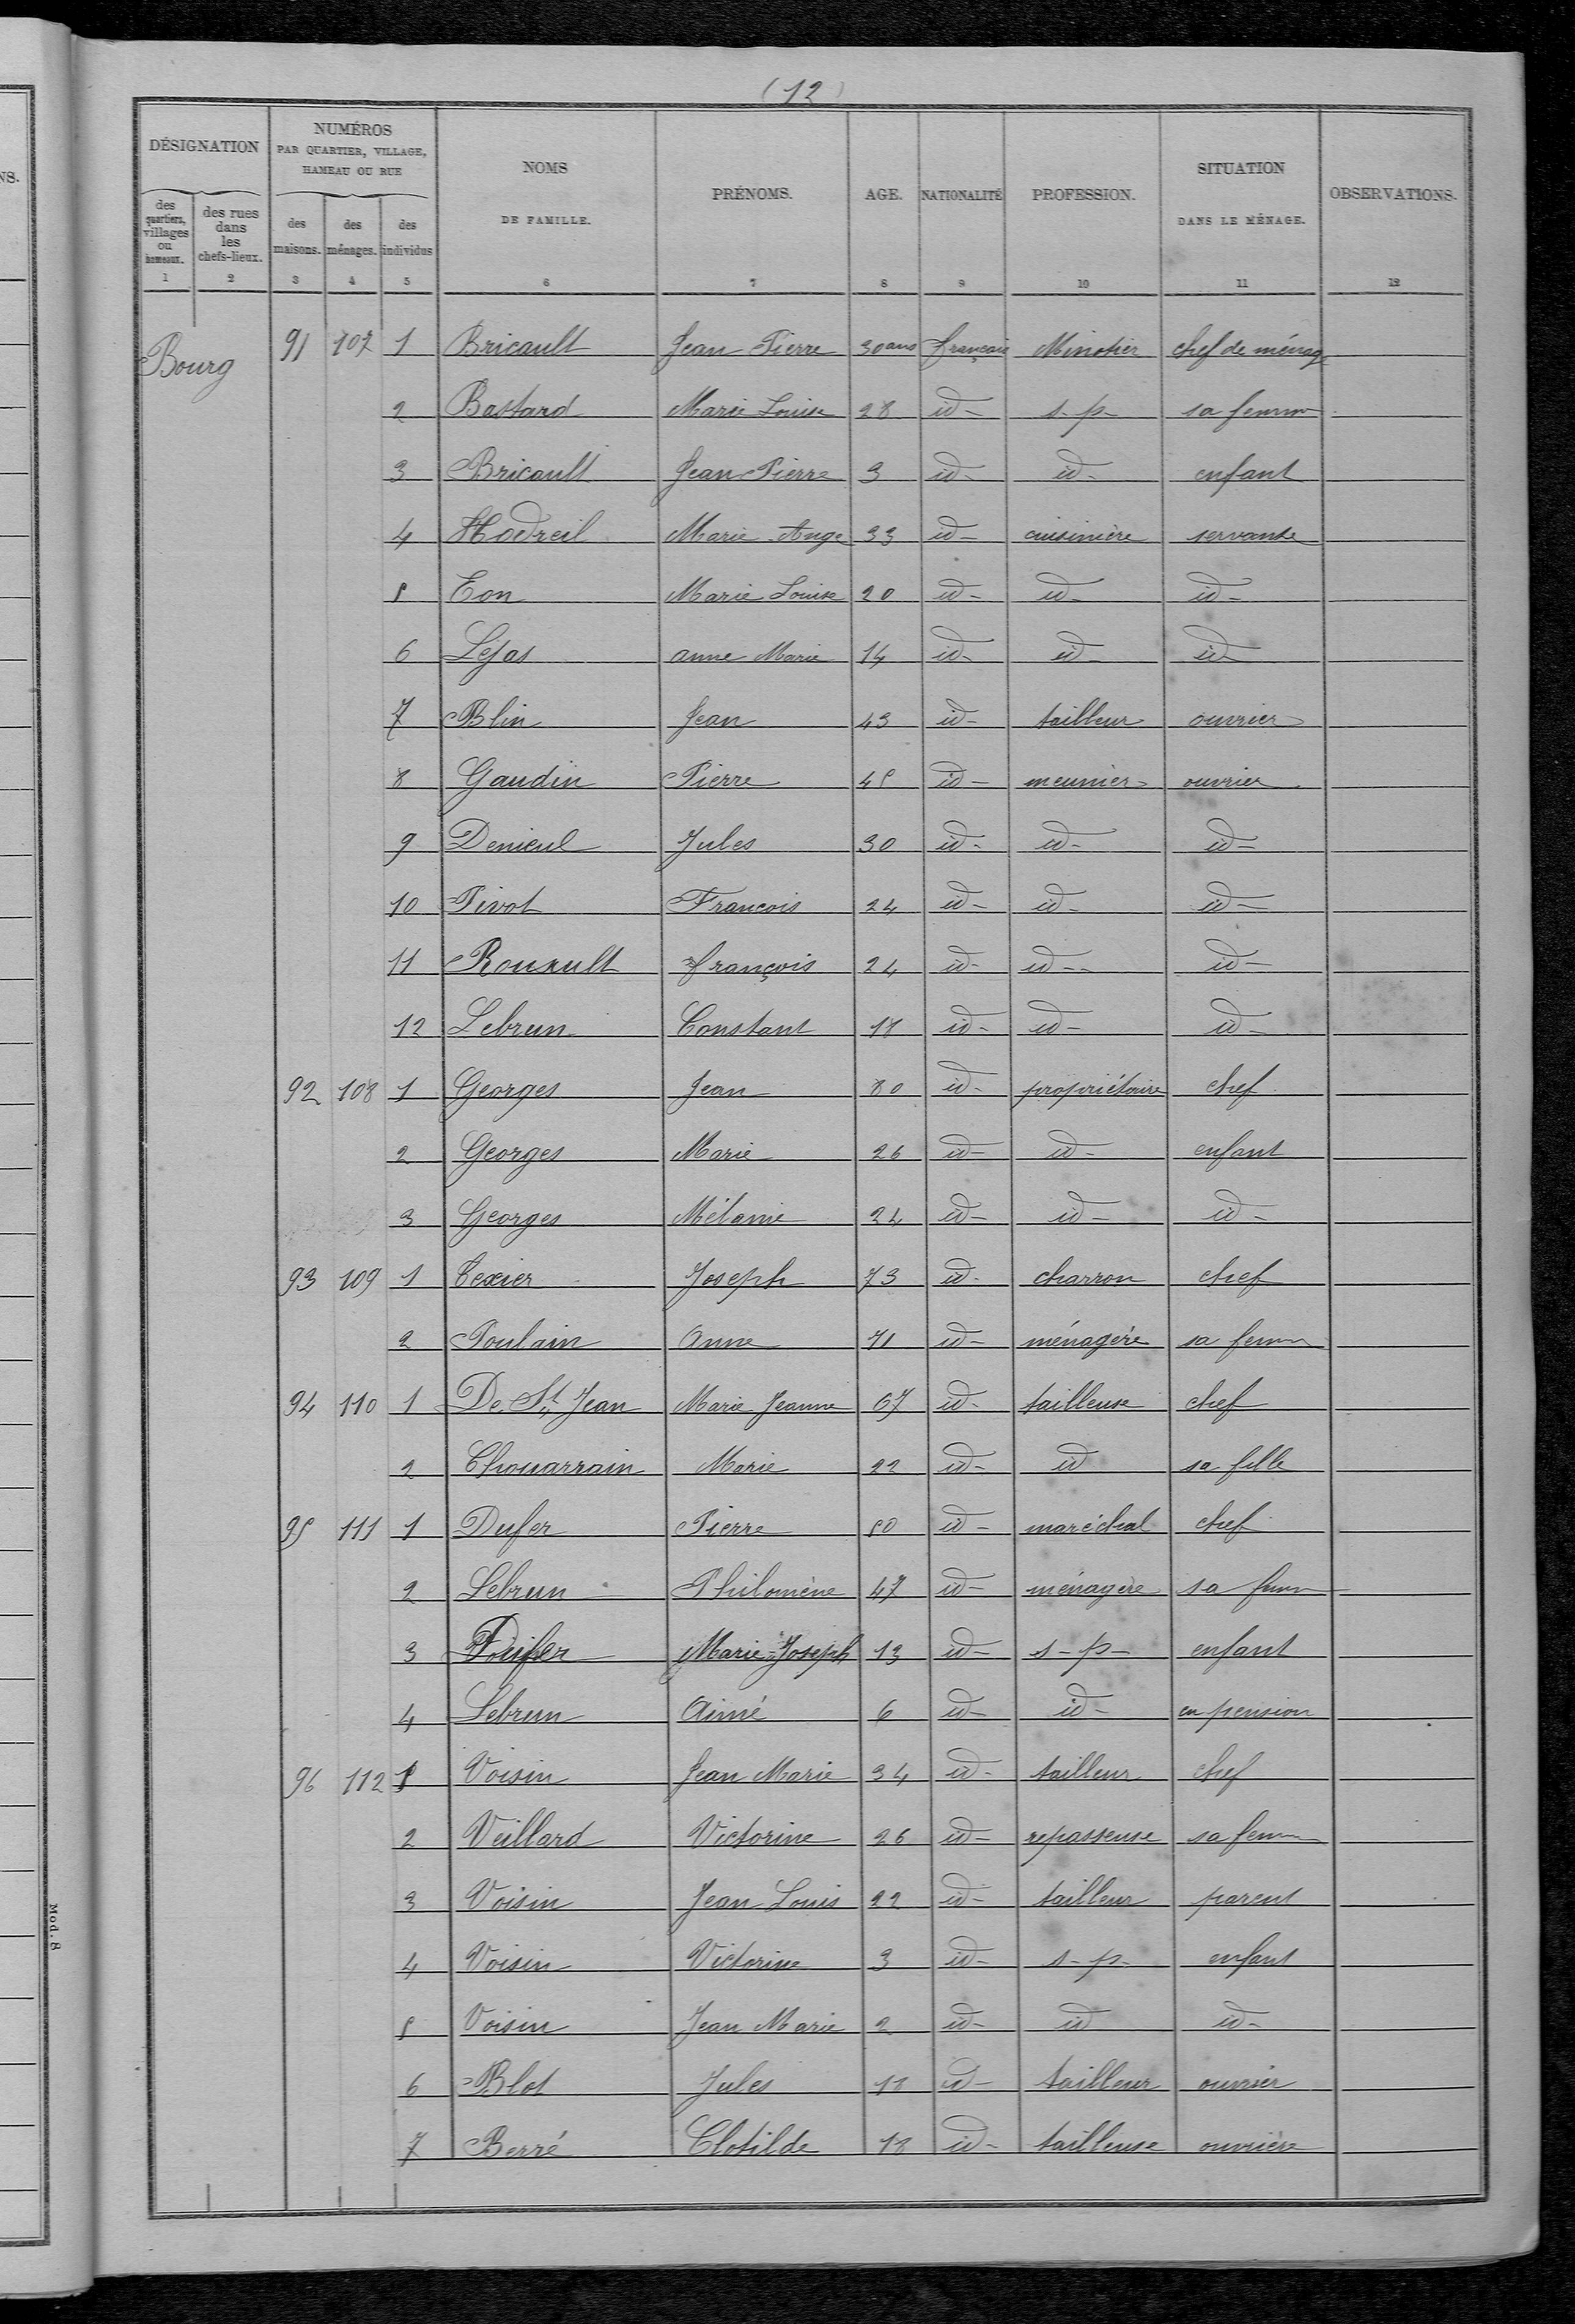 (12)
DÉSIGNATION
NUMÉROS PAR QUARTIER, VILLAGE, HAMEAU OU RUE
NOMS DE FAMILLE.
PRÉNOMS.
AGE.
NATIONALITÉ
PROFESSION.
SITUATION DANS LE MÉNAGE.
OBSERVATIONS.
des quartiers, villages ou hameaux.
des rues dans les chefs-lieux.
des maisons.
des ménages.
des individus
1 2 3 4 5 6 7 8 9 10 11 12
Bourg 91 107 1 Bricault Jean Pierre 30 ans français Minotier chef de ménage
2 Bastard Marie Louise 28 id- s-p- sa femme
3 Bricault Jean Pierre 3 id- id- enfant
4 Hodreil Marie Ange 33 id- cuisinière servante
5 Eon Marie Louise 20 id- id- id-
6 Léjas anne Marie 14 id- id- id-
7 Blin Jean 43 id- tailleur ouvrier
8 Gaudin Pierre 45 id- meunier ouvrier
9 Denieul Jules 30 id- id- id-
10 Pivot Francois 24 id- id- id-
11 Rouxult françois 24 id- id- id-
12 Lebrun Constant 18 id- id- id-
92 108 1 Georges Jean 80 id- propriétaire chef
2 Georges Marie 26 id- id- enfant
3 Georges Mélanie 24 id- id- id-
93 109 1 Texier Joseph 73 id- charron chef
2 Poulain Anne 71 id- ménagère sa femme
94 110 1 De St Jean Marie Jeanne 67 id- tailleuse chef
2 Chouarrain Marie 22 id- id sa fille
95 111 1 Dufer Pierre 50 id- maréchal chef
2 Lebrun Philomène 47 id- ménagère sa femme
3 Dufer Marie-Joseph 13 id- s-p- enfant
4 Lebrun Aimé 6 id- id- en pension
96 112 1 Voisin Jean Marie 34 id- tailleur chef
2 Veillard Victorine 26 id- repasseuse sa femme
3 Voisin Jean Louis 22 id- tailleur parent
4 Voisin Victorine 3 id- s-p- enfant
5 Voisin Jean Marie 2 id- id id-
6 Blot Jules 18 id- tailleur ouvrier
7 Berré Clotilde 18 id- tailleuse ouvrière
NS.
Mod. 8